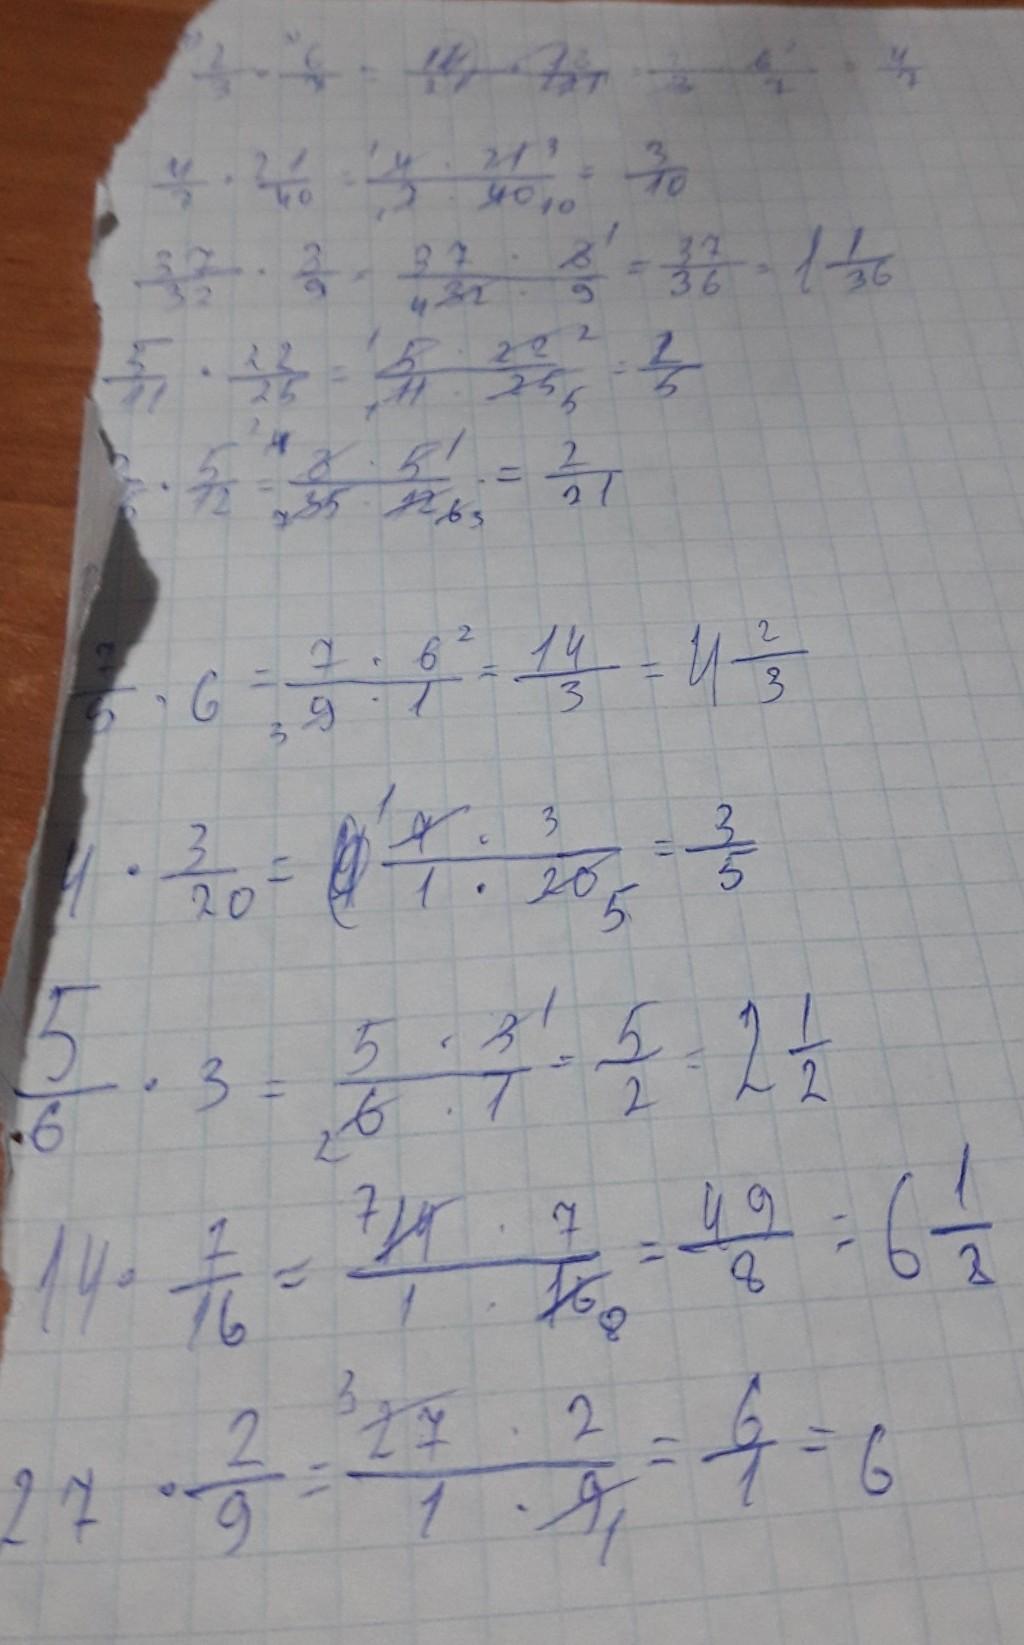 2/3 · 6/7 = = 4/7
4/7 · 21/40 = 4 · 21/7 · 40 = 3/10
37/32 · 8/9 = 37 · 8/32 · 9 = 37/36 = 1 1/36
5/11 · 22/25 = 5 · 22/11 · 25 = 2/5
· 5/12 = 8 · 5/35 · 12 = 2/21
· 6 = 7 · 6/9 · 1 = 14/3 = 4 2/3
4 · 3/20 = 4 · 3/1 · 20 = 3/5
5/6 · 3 = 5 · 3/6 · 1 = 5/2 = 2 1/2
14 · 7/16 = 14 · 7/1 · 16 = 49/8 = 6 1/8
27 · 2/9 = 27 · 2/1 · 9 = 6/1 = 6